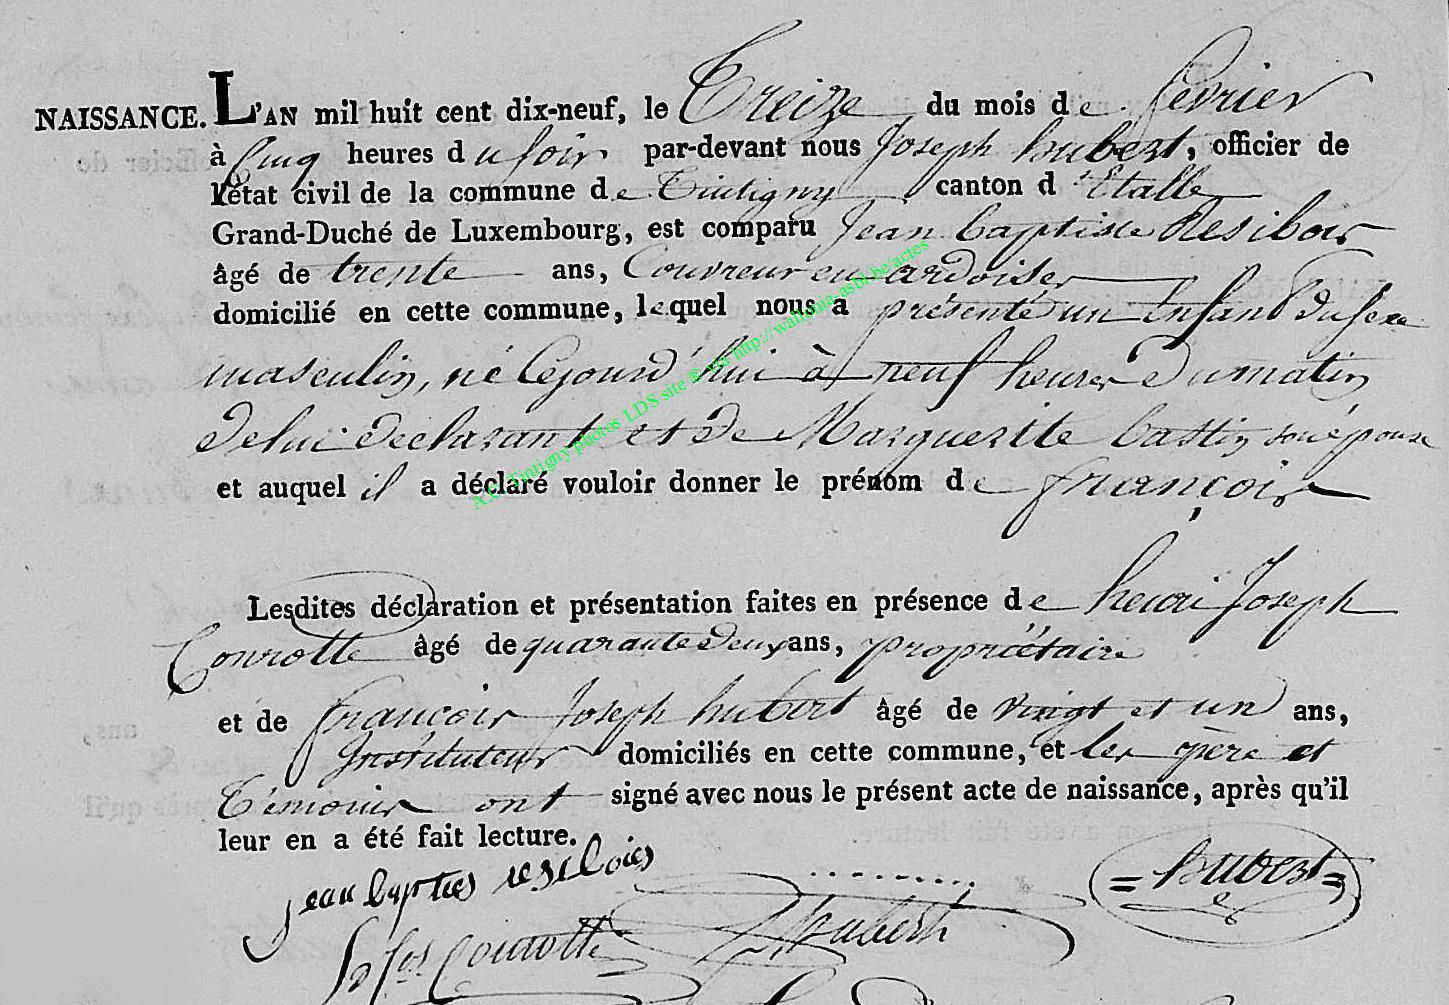 NAISSANCE. L'AN mil huit cent dix-neuf, le Treize du mois de février
à Cinq heures du soir par-devant nous Joseph hubert, officier de
l'état civil de la commune de Tintigny canton d'Etalle
Grand-Duché de Luxembourg, est comparu Jean baptiste
âgé de trente ans, Couvreur en ardoises
domicilié en cette commune, lequel nous a présenté un Enfant du sexe
masculin, né Cejourd'hui à neuf heures du matin
de lui déclarant et de Marguerite bastin son épouse
et auquel il a déclaré vouloir donner le prénom de françois
A.C. Tintigny photos LDS site @ via http://wallonia-asbl.be/actes
Lesdites déclaration et présentation faites en présence de henri Joseph
Conrotte âgé de quarante deux ans, propriétaire
et de françois Joseph hubert âgé de vingt et un ans,
Instituteur domiciliés en cette commune, et les père et
Témoins ont signé avec nous le présent acte de naissance, après qu'il
leur en a été fait lecture.
jean
hubert
Conrotte hubert